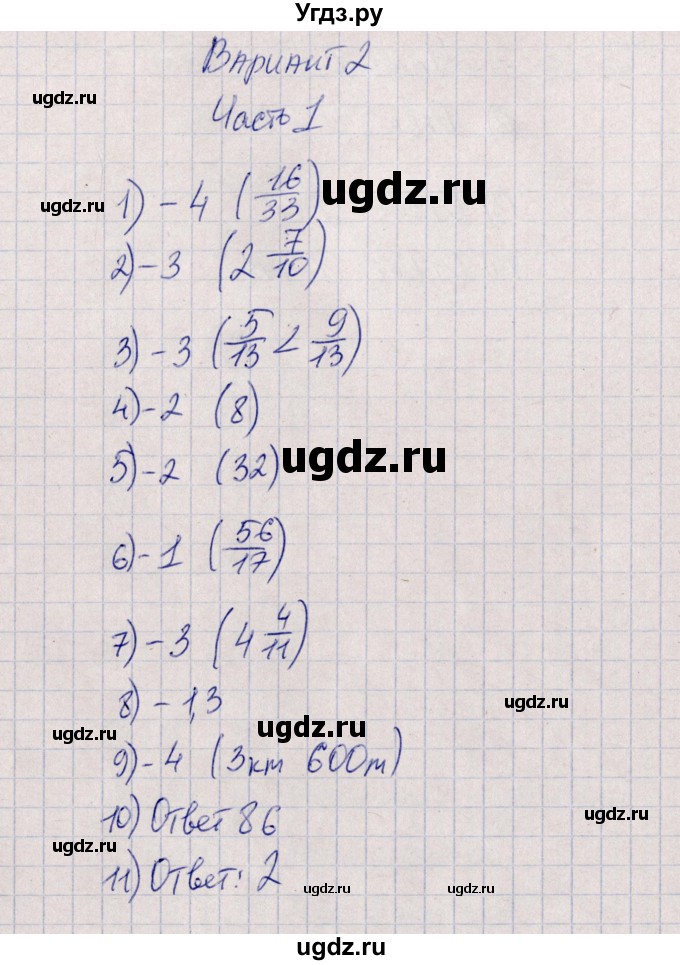 Угдз.ру
Вариант 2
ugdz.ru
Часть 1
ugdz.ru
1) - 4 (16/33) ugdz.ru
2) - 3 (2 7/10)
3) - 3 (5/13 < 9/13)
4) - 2 (8)
5) - 2 (32) ugdz.ru
6) - 1 (56/17)
7) - 3 (4 4/11)
8) - 1,3 ugdz.ru
ugdz.ru ugdz.ru
9) - 4 (3км 600м)
10) Ответ 86 ugdz.ru
ugdz.ru
11) Ответ: 2 ugdz.ru ugdz.ru
ugdz.ru